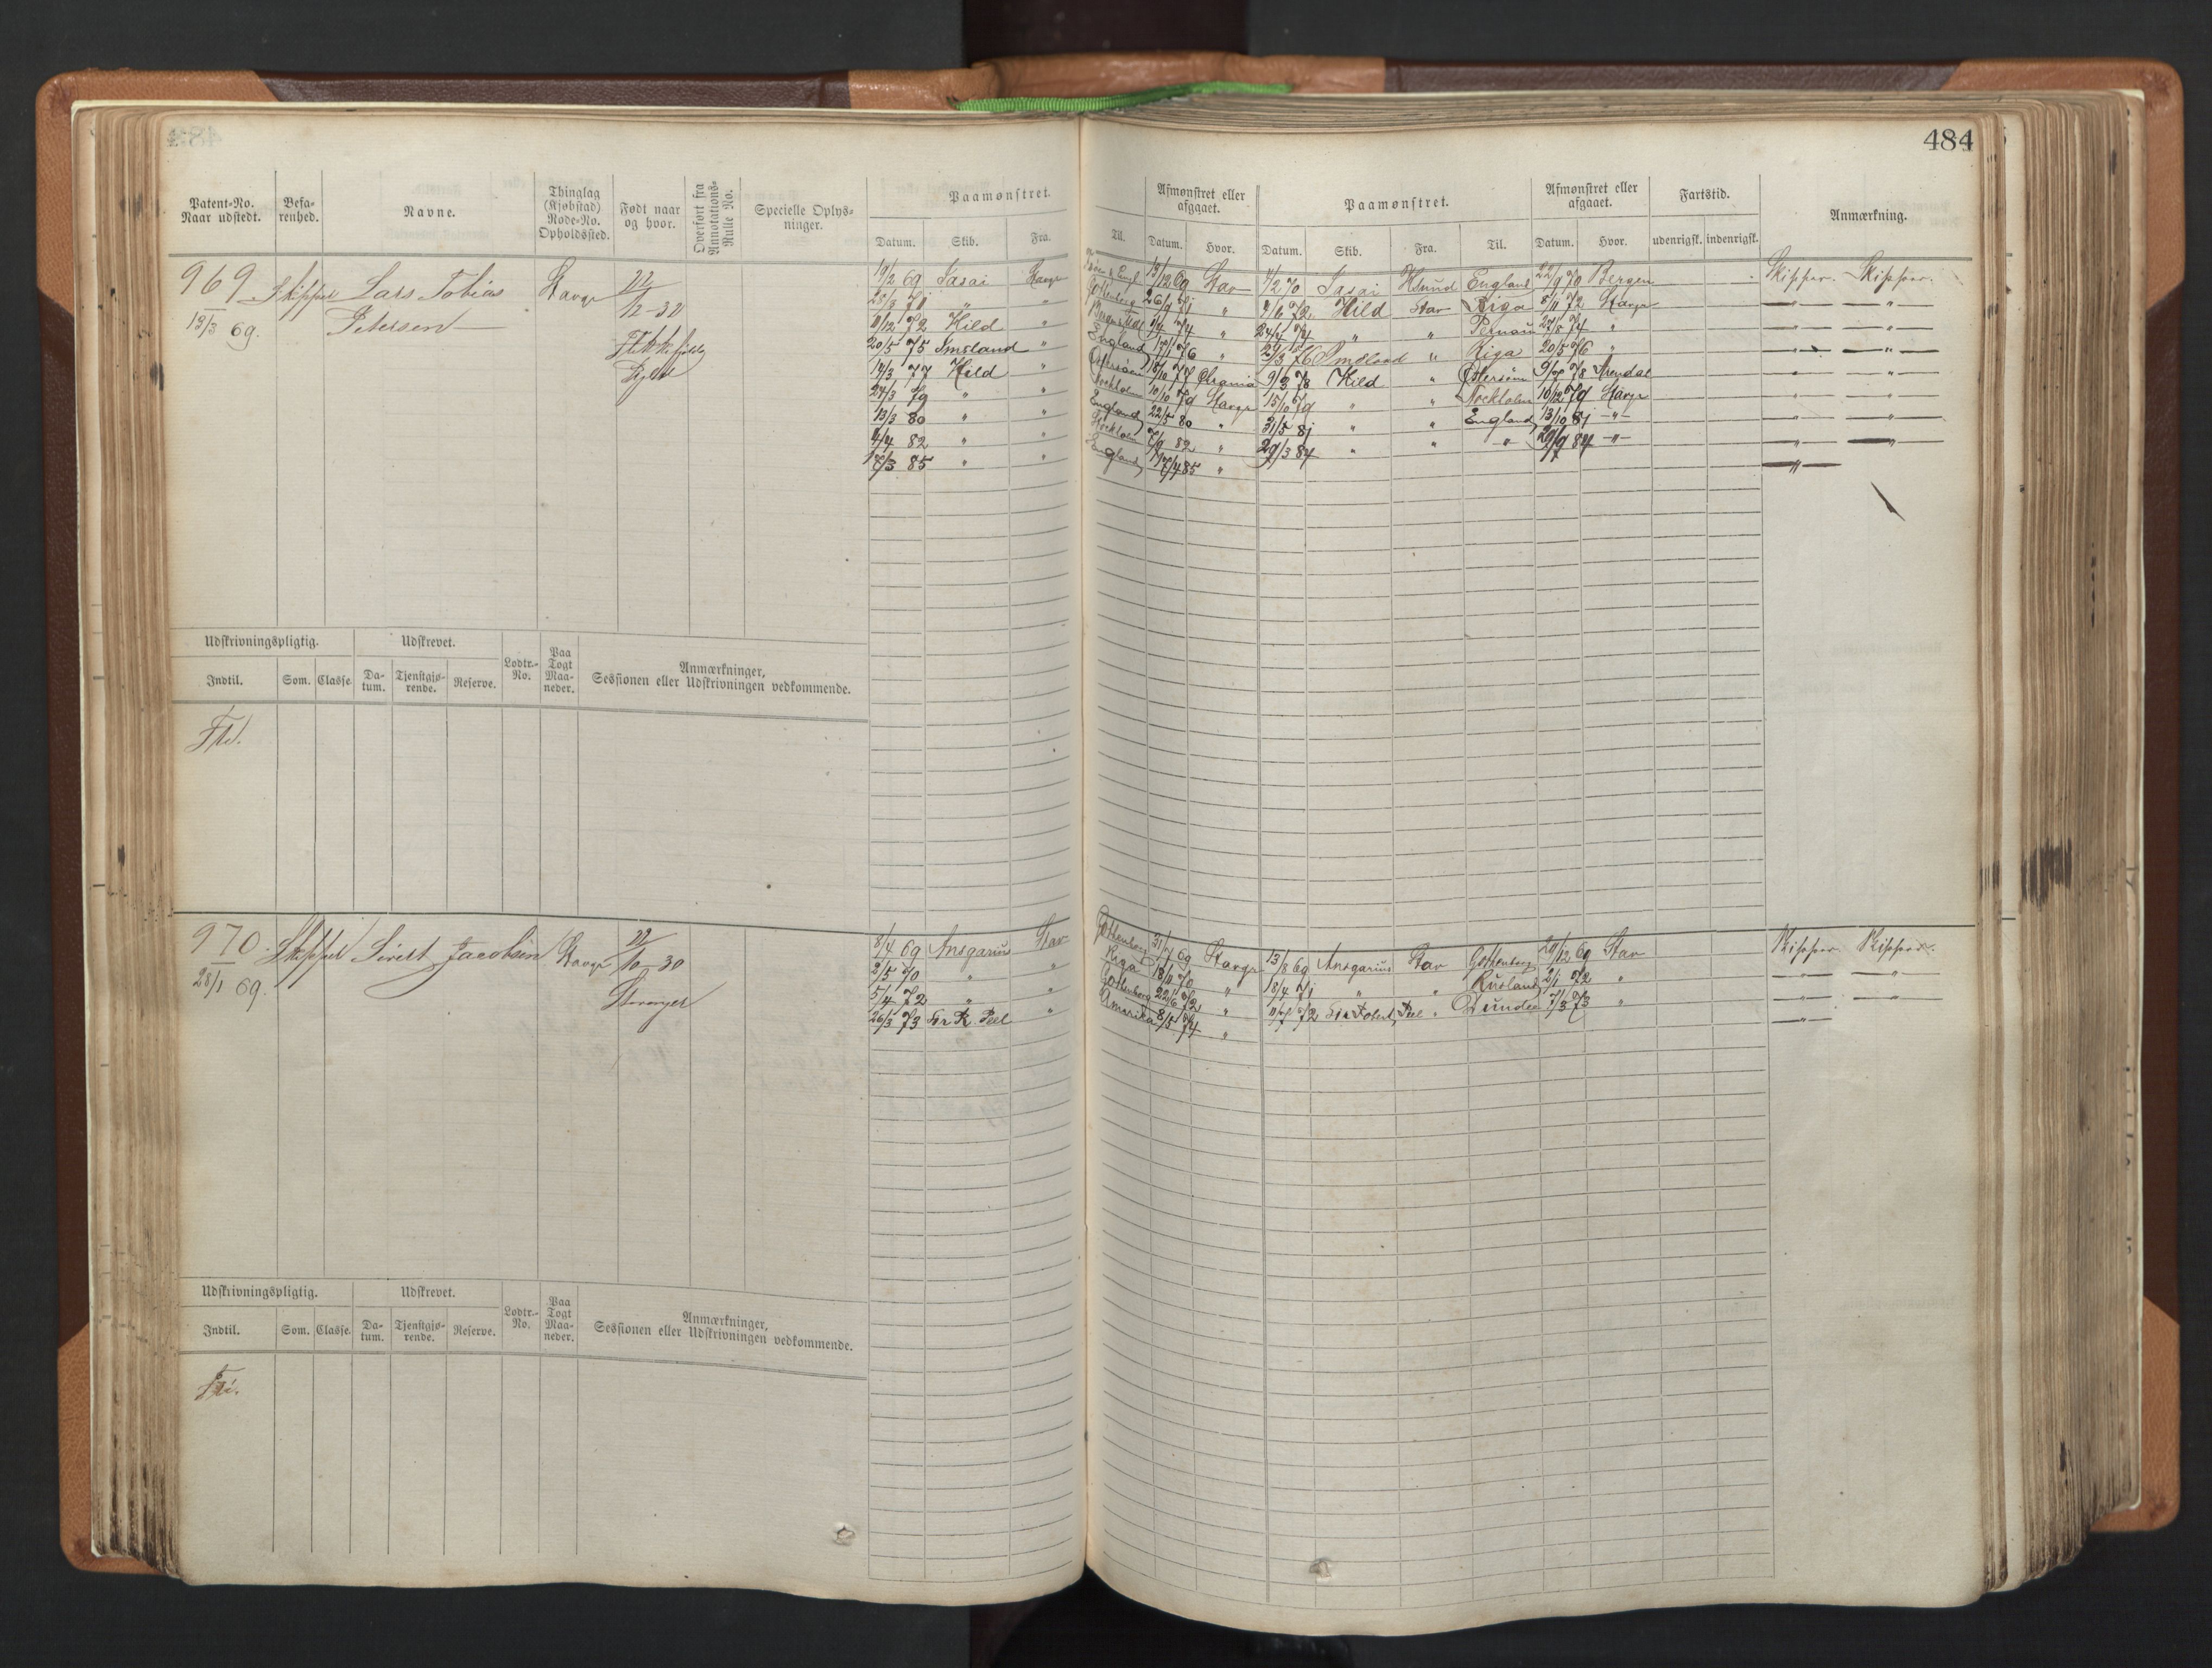 484
Patent-No. Naar udstedt.
Befa-renhed.
Navne.
Thinglag (Kjøbstad) Rode-No. Opholdssted.
Født naar og hvor.
Overført fra Annotations-Rulle No.
Specielle Oplys-ninger.
Paamønstret.
Datum. Skib. Fra. Til.
Afmønstret eller afgaaet.
Datum. Hvor.
Paamønstret.
Datum. Skib. Fra. Til.
Afmønstret eller afgaaet.
Datum. Hvor.
Fartstid.
udenrigsk. indenrigsk.
Anmærkning.
969 Skipper Lars Tobias Petersen Stavgr
13/3 69.
19/2 69 Stavgr 13/12 69 Stav 4/2 70 England 22/9 70 Bergen Skipper. Skipper.
" " Gottenberg 26/9 71 " 4/6 72 Hild Stav Riga 8/11 72 Stavgr " "
11/12 72 Hild " " " " Pernau 27/8 74 " " "
20/5 75 Imsland " England 17/1 76 " 29/3 76 Imsland " Riga 20/5 76 " " "
14/3 77 Hild " Østersøen 18/10 77 9/3 78 Hild " Østersøen Arendal " "
24/3 79 " " Stockholm 10/10 79 Stavgr 15/10 79 " " Stockholm 10/12 79 Stavgr " "
13/3 80 " " England 22/5 80 " 31/5 81 " " England 13/10 81 " " "
4/4 82 " " Stockholm 7/9 82 " 29/3 84 " " " 29/9 84 " " "
17/3 85 " " England 17/4 85 " "
Udskrivningspligtig.
Indtil. Som. Classe
Udskrevet.
Da-tum. Tjenstgjø-rende. Reserve.
Lodtr.-No.
Paa Togt Maa-neder.
Anmærkninger, Sessionen eller Udskrivningen vedkommende.
970. Skipper Sivert Jacobsen Stavgr 22/10-30 Stavanger
28/1 69.
8/4 69 Ansgarius Stav Gottenberg 31/7 69 Stavgr 13/8 69 Ansgarius Stav Gottenberg 20/12 69 Stav Skipper. Skipper.
2/5 70 " " Riga 18/11 70 " 18/4 71 " " Rusland 2/1 72 " " "
5/4 72 " " Gottenberg 22/6 72 " 11/7 72 Sir Robert Peel " Dundee 7/3 73 " " "
26/3 73 Sir R. Peel " Amerika 8/5 74 " "
Udskrivningspligtig.
Indtil. Som. Classe.
Udskrevet.
Da-tum. Tjenstgjø-rende. Reserve.
Lodtr.-No.
Paa Togt Maa-neder.
Anmærkninger, Sessionen eller Udskrivningen vedkommende.